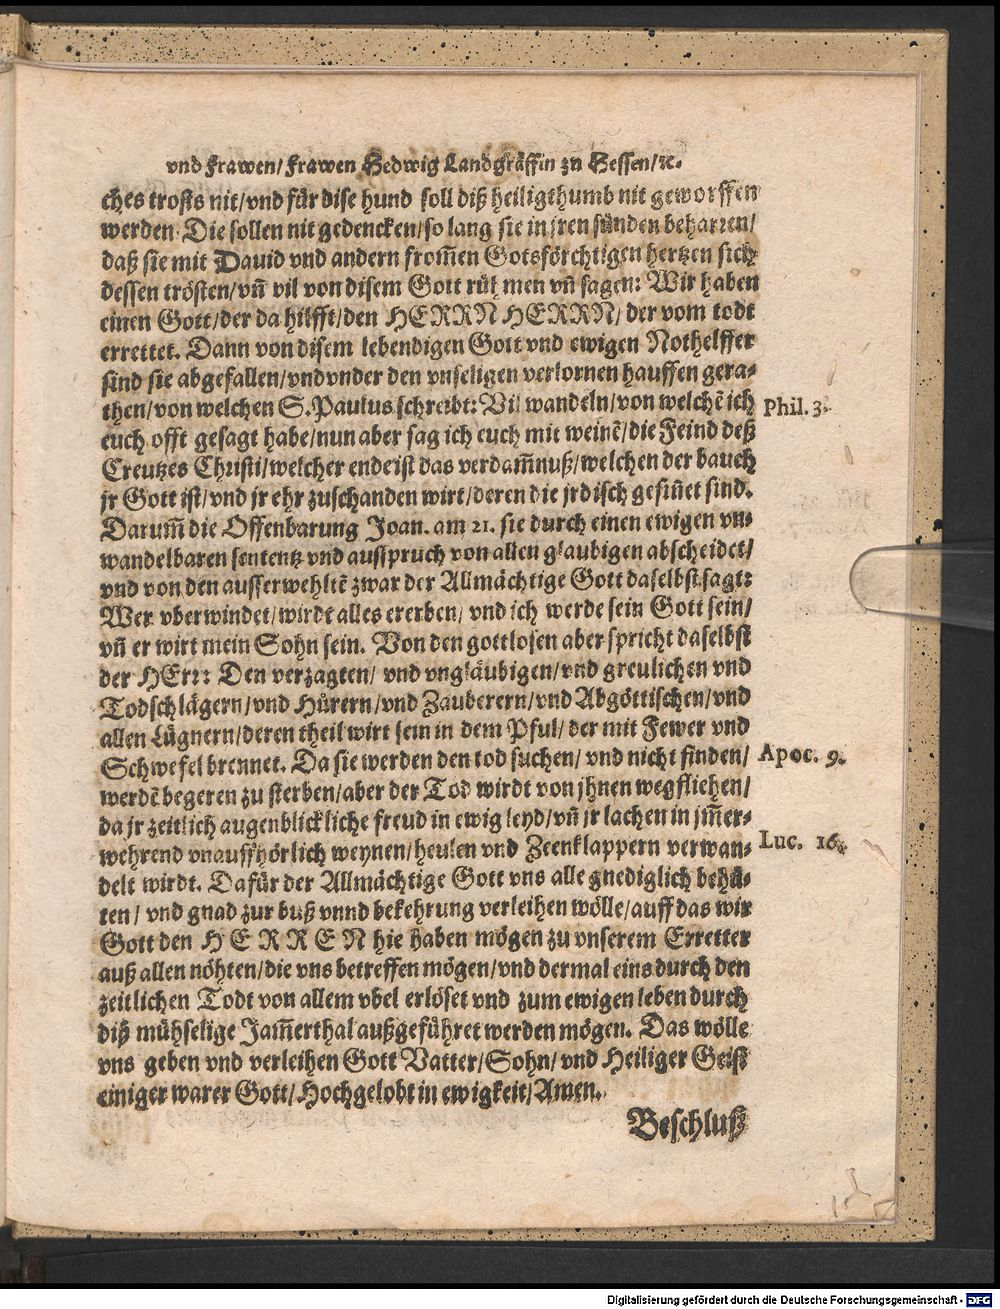 vnd Frawen/ Frawen Hedwig Landgräffin zu Hessen/ ꝛc.
ches trosts nit/ vnd für dise hund soll diß heiligthumb nit geworffen
werden. Die sollen nit gedencken/ so lang sie in jren sünden beharren/
daß sie mit Dauid vnd andern from̃en Gotsförchtigen hertzen sich
dessen trösten/ vñ vil von disem Gott rühmen vñ sagen: Wir haben
einen Gott/ der da hilfft/ den HERRN HERRN/ der vom todt
errettet. Dann von disem lebendigen Gott vnd ewigen Nothelffer
sind sie abgefallen/ vnd vnder den vnseligen verlornen hauffen gera-
then/ von welchen S. Paulus schreibt: Vil wandeln/ von welchẽ ich Phil. 3.
euch offt gesagt habe/ nun aber sag ich euch mit weinẽ/ die Feind deß
Creutzes Christi/ welcher ende ist das verdam̃nuß/ welchen der bauch
jr Gott ist/ vnd jr ehr zuschanden wirt/ deren die jrdisch gesiñet sind.
Darum̃ die Offenbarung Joan. am 21. sie durch einen ewigen vn-
wandelbaren sententz vnd ausspruch von allen glaubigen abscheidet/
vnd von den ausserwehltẽ zwar der Allmächtige Gott daselbst sagt:
Wer vberwindet/ wirdt alles ererben/ vnd ich werde sein Gott sein/
vñ er wirt mein Sohn sein. Von den gottlosen aber spricht daselbst
der HErr: Den verzagten/ vnd vngläubigen/ vnd greulichen vnd
Todschlägern/ vnd Hůrern/ vnd Zauberern/ vnd Abgöttischen/ vnd
allen Lügnern/ deren theil wirt sein in dem Pful/ der mit Fewer vnd
Schwefel brennet. Da sie werden den tod suchen/ vnd nicht finden/ Apoc. 9.
werdẽ begeren zu sterben/ aber der Tod wirdt von jhnen wegfliehen/
da jr zeitlich augenblickliche freud in ewig leyd/ vñ jr lachen in jm̃er-
wehrend vnauffhörlich weynen/ heulen vnd Zeenklappern verwan- Luc. 16.
delt wirdt. Dafür der Allmächtige Gott vns alle gnediglich behü-
ten/ vnd gnad zur buß vnnd bekehrung verleihen wölle/ auff das wir
Gott den HERREN hie haben mögen zu vnserem Erretter
auß allen nöhten/ die vns betreffen mögen/ vnd dermal eins durch den
zeitlichen Todt von allem vbel erlöset vnd zum ewigen leben durch
diß mühselige Jam̃erthal außgeführet werden mögen. Das wölle
vns geben vnd verleihen Gott Vatter/ Sohn/ vnd Heiliger Geist
einiger warer Gott/ Hochgelobt in ewigkeit/ Amen.
Beschluß
Digitalisierung gefördert durch die Deutsche Forschungsgemeinschaft - DFG